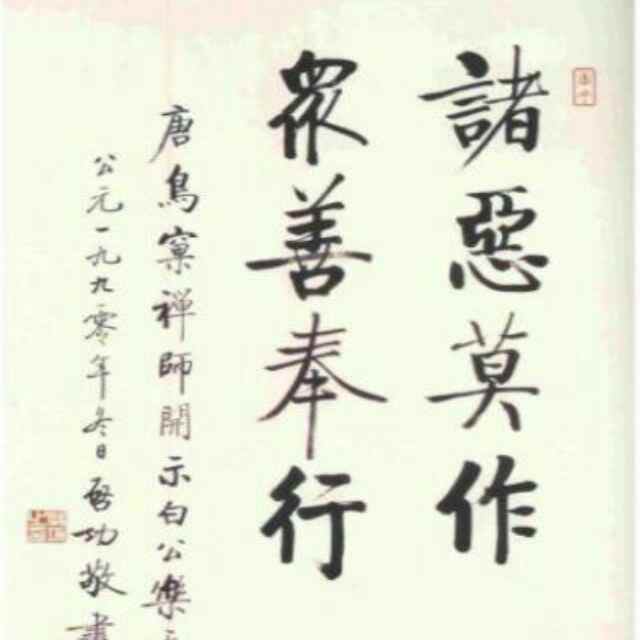 諸惡莫作
眾善奉行
唐鳥窠禪師開示白公樂
公元一九九零年冬日啓功敬書